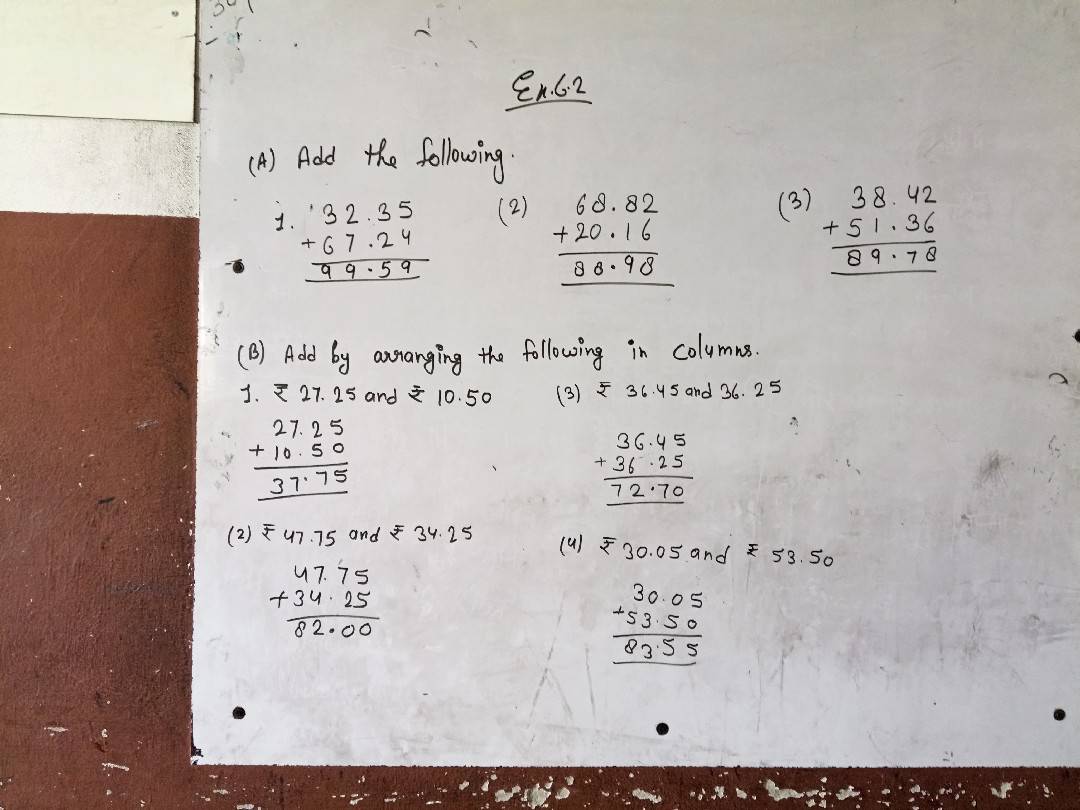 Ex.6.2
(A) Add the following.
1. 32.35
+67.24
99.59
(2) 68.82
+20.16
88.98
(3) 38.42
+51.36
89.78
(B) Add by arranging the following in columns.
1. ₹ 27.25 and ₹ 10.50
27.25
+10.50
37.75
(2) ₹ 47.75 and ₹ 34.25
47.75
+34.25
82.00
(3) ₹ 36.45 and 36.25
36.45
+36.25
72.70
(4) ₹ 30.05 and ₹ 53.50
30.05
+53.50
83.55